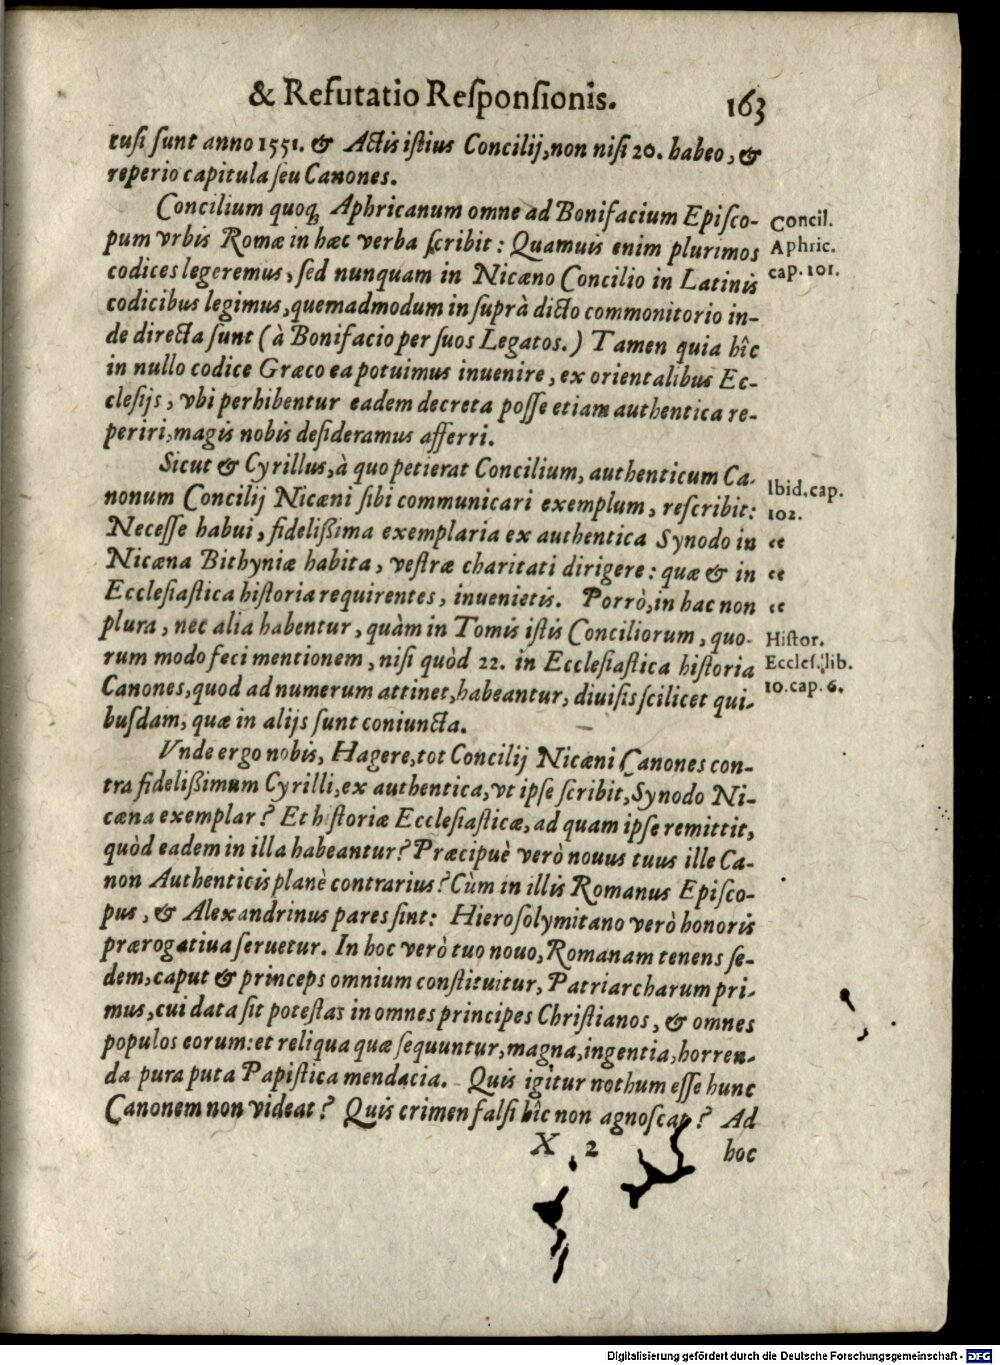 & Refutatio Reſponſionis. 163
tuſi ſunt anno 1551. & Actis iſtius Concilij, non niſi 20. habeo, &
reperio capitula ſeu Canones.
Concilium quoq; Aphricanum omne ad Bonifacium Epiſco-
pum vrbis Romæ in hæc verba ſcribit: Quamuis enim plurimos
codices legeremus, ſed nunquam in Nicæno Concilio in Latinis
codicibus legimus, quemadmodum in ſuprà dicto commonitorio in-
de directa ſunt (à Bonifacio per ſuos Legatos.) Tamen quia hîc
in nullo codice Græco ea potuimus inuenire, ex orientalibus Ec-
cleſijs, vbi perhibentur eadem decreta poſſe etiam authentica re-
periri, magis nobis deſideramus afferri.
Concil.
Aphric.
cap. 101.
Sicut & Cyrillus, à quo petierat Concilium, authenticum Ca-
nonum Concilij Nicæni ſibi communicari exemplum, reſcribit:
Neceſſe habui, fideliſſima exemplaria ex authentica Synodo in
Nicæna Bithyniæ habita, veſtræ charitati dirigere: quæ & in
Eccleſiaſtica hiſtoria requirentes, inuenietis. Porrò, in hac non
plura, nec alia habentur, quàm in Tomis iſtis Conciliorum, quo-
rum modo feci mentionem, niſi quòd 22. in Eccleſiaſtica hiſtoria
Canones, quod ad numerum attinet, habeantur, diuiſis ſcilicet qui-
buſdam, quæ in alijs ſunt coniuncta.
Ibid. cap.
102.
“
“
“
Hiſtor.
Eccleſ. lib.
10. cap. 6.
Vnde ergo nobis, Hagere, tot Concilij Nicæni Canones con-
tra fideliſſimum Cyrilli, ex authentica, vt ipſe ſcribit, Synodo Ni-
cæna exemplar? Et hiſtoriæ Eccleſiaſticæ, ad quam ipſe remittit,
quòd eadem in illa habeantur? Præcipuè verò nouus tuus ille Ca-
non Authenticis planè contrarius? Cùm in illis Romanus Epiſco-
pus, & Alexandrinus pares ſint: Hieroſolymitano verò honoris
prærogatiua ſeruetur. In hoc verò tuo nouo, Romanam tenens ſe-
dem, caput & princeps omnium conſtituitur, Patriarcharum pri-
mus, cui data ſit poteſtas in omnes principes Chriſtianos, & omnes
populos eorum: et reliqua quæ ſequuntur, magna, ingentia, horren-
da pura puta Papiſtica mendacia. Quis igitur nothum eſſe hunc
Canonem non videat? Quis crimen falſi hîc non agnoſcat? Ad
X 2 hoc
Digitalisierung gefördert durch die Deutsche Forschungsgemeinschaft - DFG